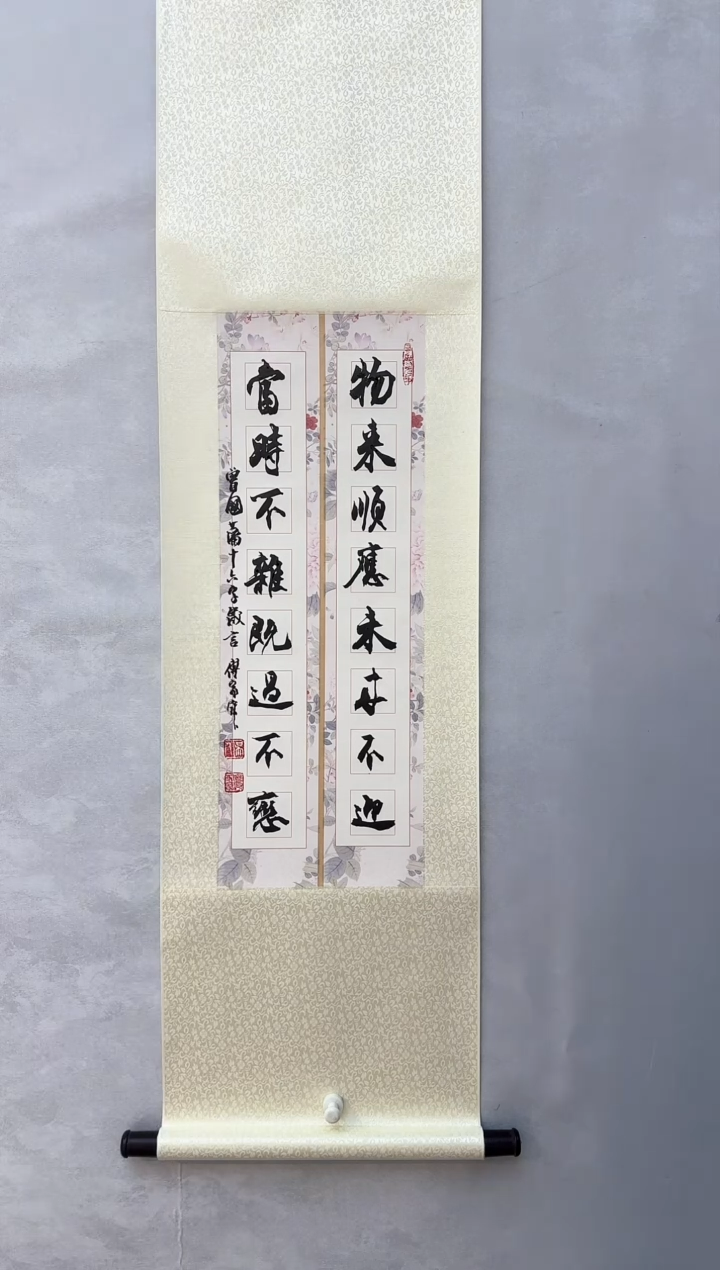 物来順應未来不迎
當時不雜既過不戀
曾國藩十六字箴言